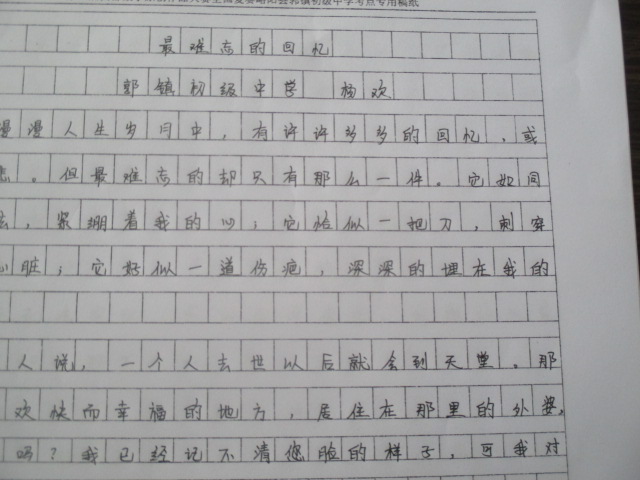 最难忘的回忆
郭镇初级中学 杨欢
漫漫人生岁月中，有许许多多的回忆，或
。但最难忘的却只有那么一件。它如同
，紧绷着我的心；它恰似一把刀，刺穿
心脏；它好似一道伤疤，深深的埋在我的
人说，一个人去世以后就会到天堂。那
欢快而幸福的地方，居住在那里的外婆，
吗？我已经记不清您脸的样子，可我对